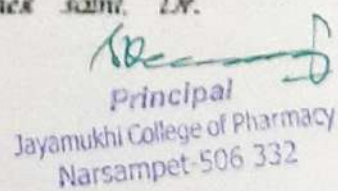 Dr.
Principal
Jayamukhi College of Pharmacy
Narsampet-506 332